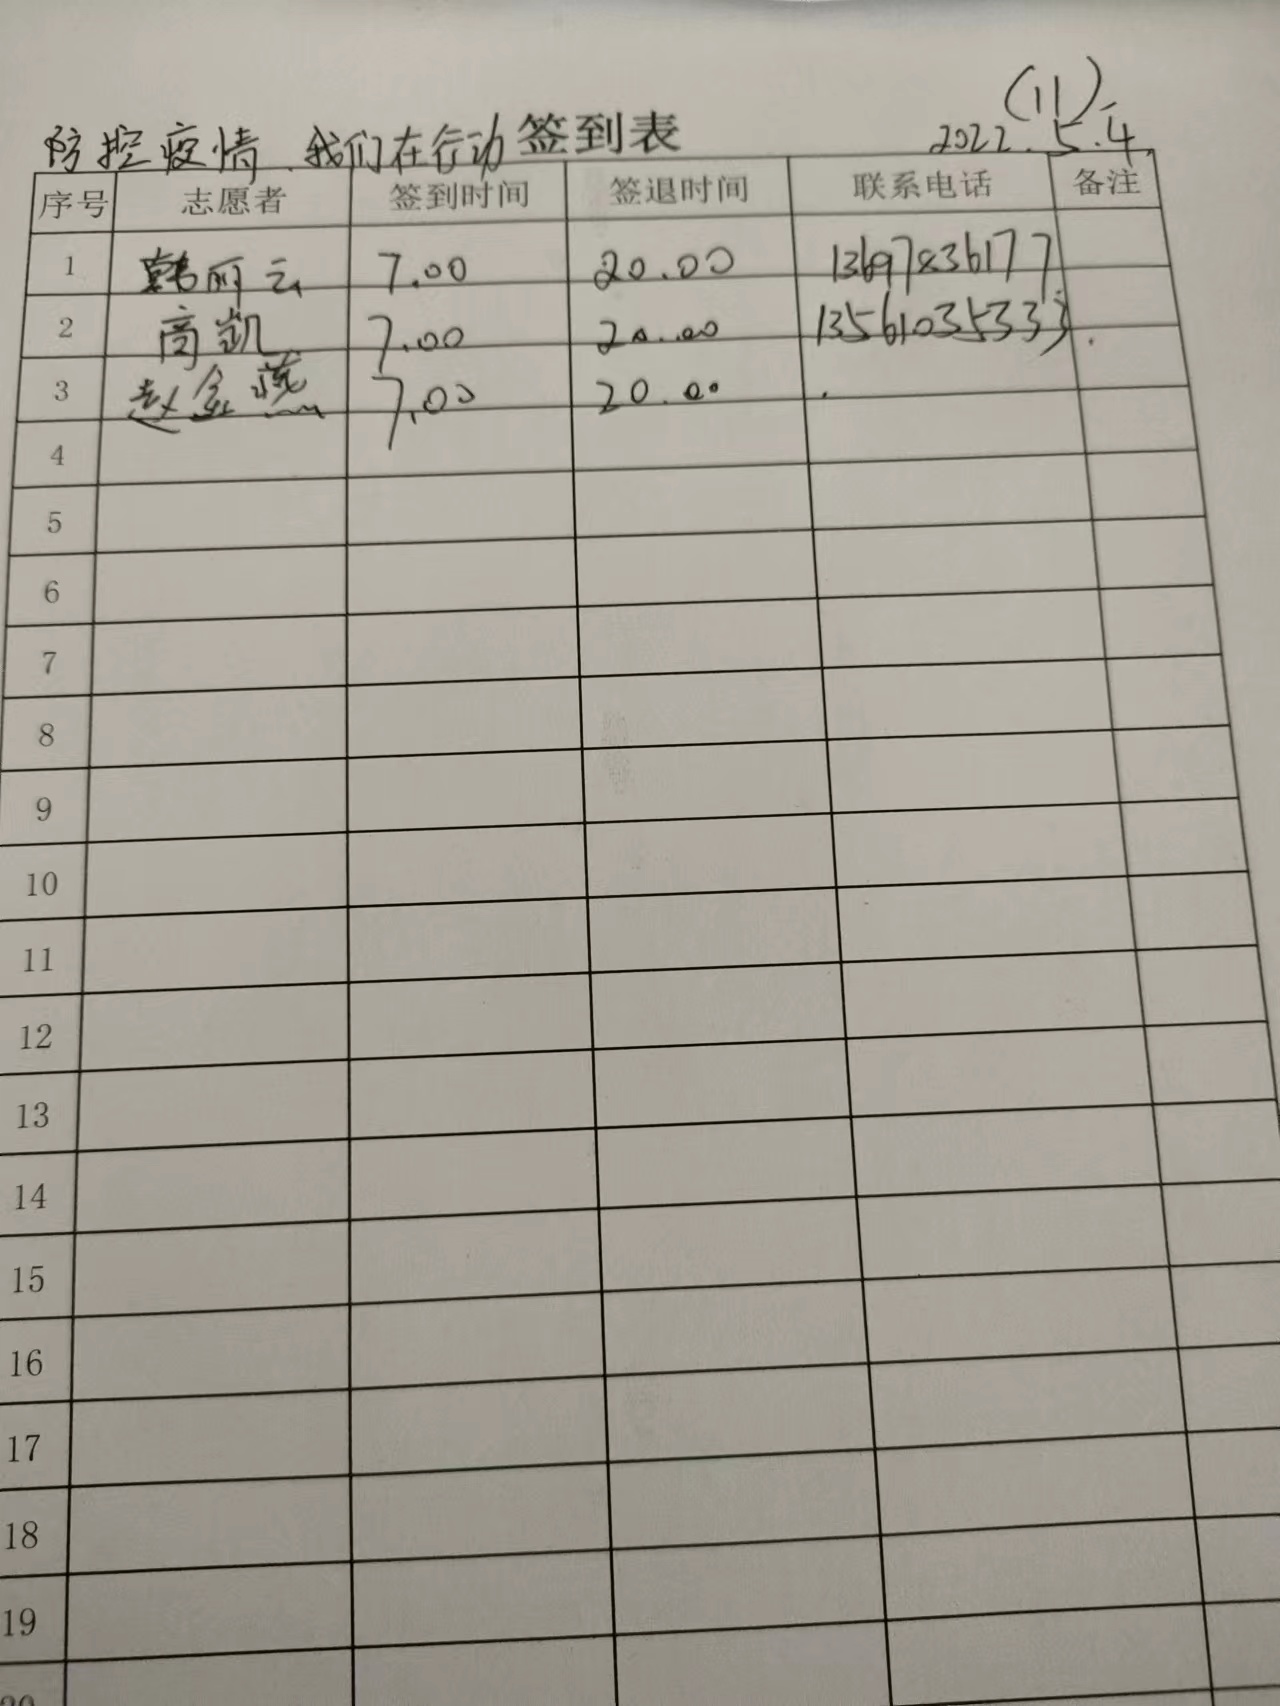 (11)
防控疫情、我们在行动 签到表 2022.5.4.
序号 志愿者 签到时间 签退时间 联系电话 备注
1 韩丽云 7.00 20.00 13697836177
2 高凯 7.00 20.00 13561035333.
3 赵金燕 7.00 20.00 .
4
5
6
7
8
9
10
11
12
13
14
15
16
17
18
19
20